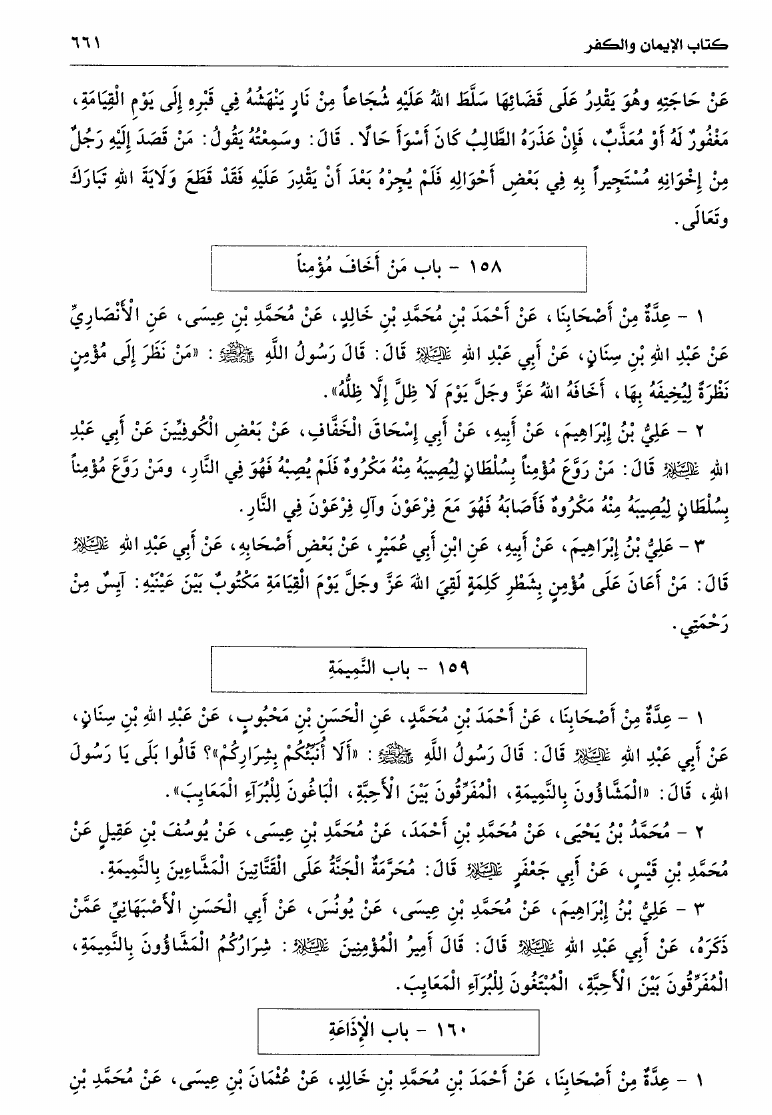 كتاب الإيمان والكفر ٦٦١
عَنْ حَاجَتِهِ وهُوَ يَقْدِرُ عَلَى قَضَائِهَا سَلَّطَ اللهُ عَلَيْهِ شُجَاعاً مِنْ نَارٍ يَنْهَشُهُ فِي قَبْرِهِ إِلَى يَوْمِ الْقِيَامَةِ،
مَغْفُورٌ لَهُ أَوْ مُعَذَّبٌ، فَإِنْ عَذَرَهُ الطَّالِبُ كَانَ أَسْوَأَ حَالًا. قَالَ: وسَمِعْتُهُ يَقُولُ: مَنْ قَصَدَ إِلَيْهِ رَجُلٌ
مِنْ إِخْوَانِهِ مُسْتَجِيراً بِهِ فِي بَعْضِ أَحْوَالِهِ فَلَمْ يُجِرْهُ بَعْدَ أَنْ يَقْدِرَ عَلَيْهِ فَقَدْ قَطَعَ وَلَايَةَ اللهِ تَبَارَكَ
وتَعَالَى.
١٥٨ - باب مَنْ أَخَافَ مُؤْمِناً
١ - عِدَّةٌ مِنْ أَصْحَابِنَا، عَنْ أَحْمَدَ بْنِ مُحَمَّدِ بْنِ خَالِدٍ، عَنْ مُحَمَّدِ بْنِ عِيسَى، عَنِ الْأَنْصَارِيِّ
عَنْ عَبْدِ اللهِ بْنِ سِنَانٍ، عَنْ أَبِي عَبْدِ اللهِ عَلَيْهِ السَّلَام قَالَ: قَالَ رَسُولُ اللَّهِ ﷺ: «مَنْ نَظَرَ إِلَى مُؤْمِنٍ
نَظْرَةً لِيُخِيفَهُ بِهَا، أَخَافَهُ اللهُ عَزَّ وجَلَّ يَوْمَ لَا ظِلَّ إِلَّا ظِلُّهُ».
٢ - عَلِيُّ بْنُ إِبْرَاهِيمَ، عَنْ أَبِيهِ، عَنْ أَبِي إِسْحَاقَ الْخَفَّافِ، عَنْ بَعْضِ الْكُوفِيِّينَ عَنْ أَبِي عَبْدِ
اللهِ عَلَيْهِ السَّلَام قَالَ: مَنْ رَوَّعَ مُؤْمِناً بِسُلْطَانٍ لِيُصِيبَهُ مِنْهُ مَكْرُوهٌ فَلَمْ يُصِبْهُ فَهُوَ فِي النَّارِ، ومَنْ رَوَّعَ مُؤْمِناً
بِسُلْطَانٍ لِيُصِيبَهُ مِنْهُ مَكْرُوهٌ فَأَصَابَهُ فَهُوَ مَعَ فِرْعَوْنَ وآلِ فِرْعَوْنَ فِي النَّارِ.
٣ - عَلِيُّ بْنُ إِبْرَاهِيمَ، عَنْ أَبِيهِ، عَنِ ابْنِ أَبِي عُمَيْرٍ، عَنْ بَعْضِ أَصْحَابِهِ، عَنْ أَبِي عَبْدِ اللهِ عَلَيْهِ السَّلَام
قَالَ: مَنْ أَعَانَ عَلَى مُؤْمِنٍ بِشَطْرِ كَلِمَةٍ لَقِيَ اللهَ عَزَّ وجَلَّ يَوْمَ الْقِيَامَةِ مَكْتُوبٌ بَيْنَ عَيْنَيْهِ: آيِسٌ مِنْ
رَحْمَتِي.
١٥٩ - باب النَّمِيمَةِ
١ - عِدَّةٌ مِنْ أَصْحَابِنَا، عَنْ أَحْمَدَ بْنِ مُحَمَّدٍ، عَنِ الْحَسَنِ بْنِ مَحْبُوبٍ، عَنْ عَبْدِ اللهِ بْنِ سِنَانٍ،
عَنْ أَبِي عَبْدِ اللهِ عَلَيْهِ السَّلَام قَالَ: قَالَ رَسُولُ اللَّهِ ﷺ: «أَلَا أُنَبِّئُكُمْ بِشِرَارِكُمْ»؟ قَالُوا بَلَى يَا رَسُولَ
اللهِ، قَالَ: «الْمَشَّاؤُونَ بِالنَّمِيمَةِ، الْمُفَرِّقُونَ بَيْنَ الْأَحِبَّةِ، الْبَاغُونَ لِلْبُرَآءِ الْمَعَايِبَ».
٢ - مُحَمَّدُ بْنُ يَحْيَى، عَنْ مُحَمَّدِ بْنِ أَحْمَدَ، عَنْ مُحَمَّدِ بْنِ عِيسَى، عَنْ يُوسُفَ بْنِ عَقِيلٍ عَنْ
مُحَمَّدِ بْنِ قَيْسٍ، عَنْ أَبِي جَعْفَرٍ عَلَيْهِ السَّلَام قَالَ: مُحَرَّمَةٌ الْجَنَّةُ عَلَى الْقَتَّاتِينَ الْمَشَّاءِينَ بِالنَّمِيمَةِ.
٣ - عَلِيُّ بْنُ إِبْرَاهِيمَ، عَنْ مُحَمَّدِ بْنِ عِيسَى، عَنْ يُونُسَ، عَنْ أَبِي الْحَسَنِ الْأَصْبَهَانِيِّ عَمَّنْ
ذَكَرَهُ، عَنْ أَبِي عَبْدِ اللهِ عَلَيْهِ السَّلَام قَالَ: قَالَ أَمِيرُ الْمُؤْمِنِينَ عَلَيْهِ السَّلَام: شِرَارُكُمُ الْمَشَّاؤُونَ بِالنَّمِيمَةِ،
الْمُفَرِّقُونَ بَيْنَ الْأَحِبَّةِ، الْمُبْتَغُونَ لِلْبُرَآءِ الْمَعَايِبَ.
١٦٠ - باب الْإِذَاعَةِ
١ - عِدَّةٌ مِنْ أَصْحَابِنَا، عَنْ أَحْمَدَ بْنِ مُحَمَّدِ بْنِ خَالِدٍ، عَنْ عُثْمَانَ بْنِ عِيسَى، عَنْ مُحَمَّدِ بْنِ